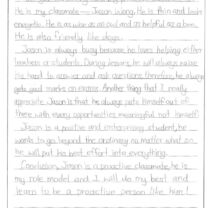 He is my classmate — Jason Wong. He is thin and brain
energetic. He is as wise as an owl and as helpful as a
He is also friendly like dogs.
Jason is always busy because he loves helping other
teachers or students. During lessons, he will always raise
his hand to answer and ask questions therefore, he always
gets good marks on exams. Another thing that I really
appreciate Jason is that he always puts himself out of
there with every opportunities meaningful not himself
Jason is a positive and enterprising student, he
works to go beyond the ordinary no matter what so
he will put his best effort into everything.
Conclusion, Jason is a proactive classmate, he is
my role model and I will do my best and
learn to be a proactive person like him!